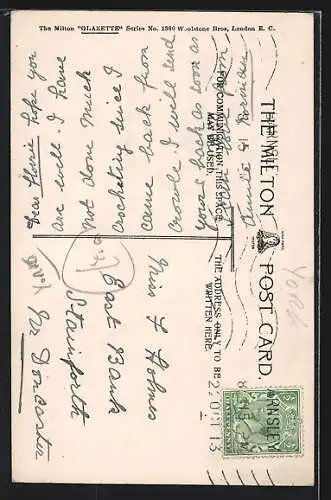 The Milton "GLAZETTE" Series No. 1380 Woolstone Bros, London E. C.
THE MILTON POST CARD.
FOR COMMUNICATION THIS SPACE
MAY BE USED.
THE ADDRESS ONLY TO BE
WRITTEN HERE.
Dear Florrie hope you
are well - I have
not done much
crocheting since I
came back from
Crowle I will send
yours back as soon as
love from
Annie
Miss F Holmes
East Bank
Stainforth
Nr Doncaster
York
RNSLEY
22 OC 13